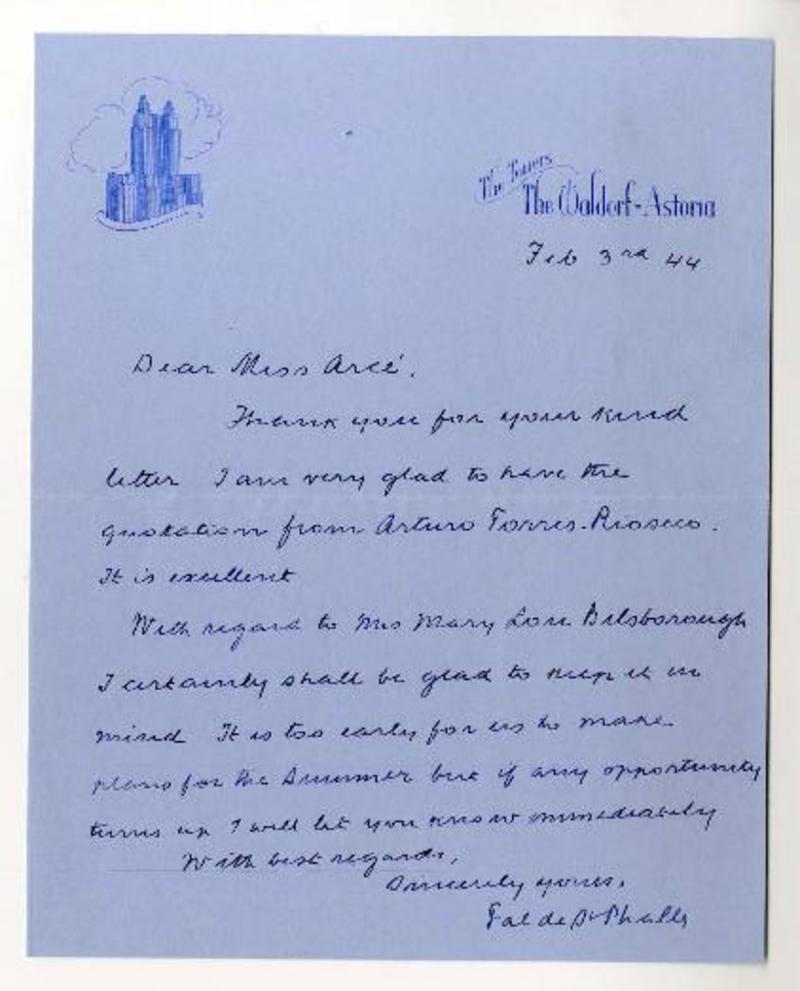 The Towers
The Waldorf-Astoria
Feb 3rd 44
Dear Miss Arcé,
Thank you for your kind
letter I am very glad to have the
quotation from Arturo Torres-Rioseco.
It is excellent
With regard to Mrs Mary Lou Bilsborough
I certainly shall be glad to keep it in
mind It is too early for us to make
plans for the Summer but if any opportunity
turns up I will let you know immediately
With best regards,
Sincerely yours,
Fal de St Phalle